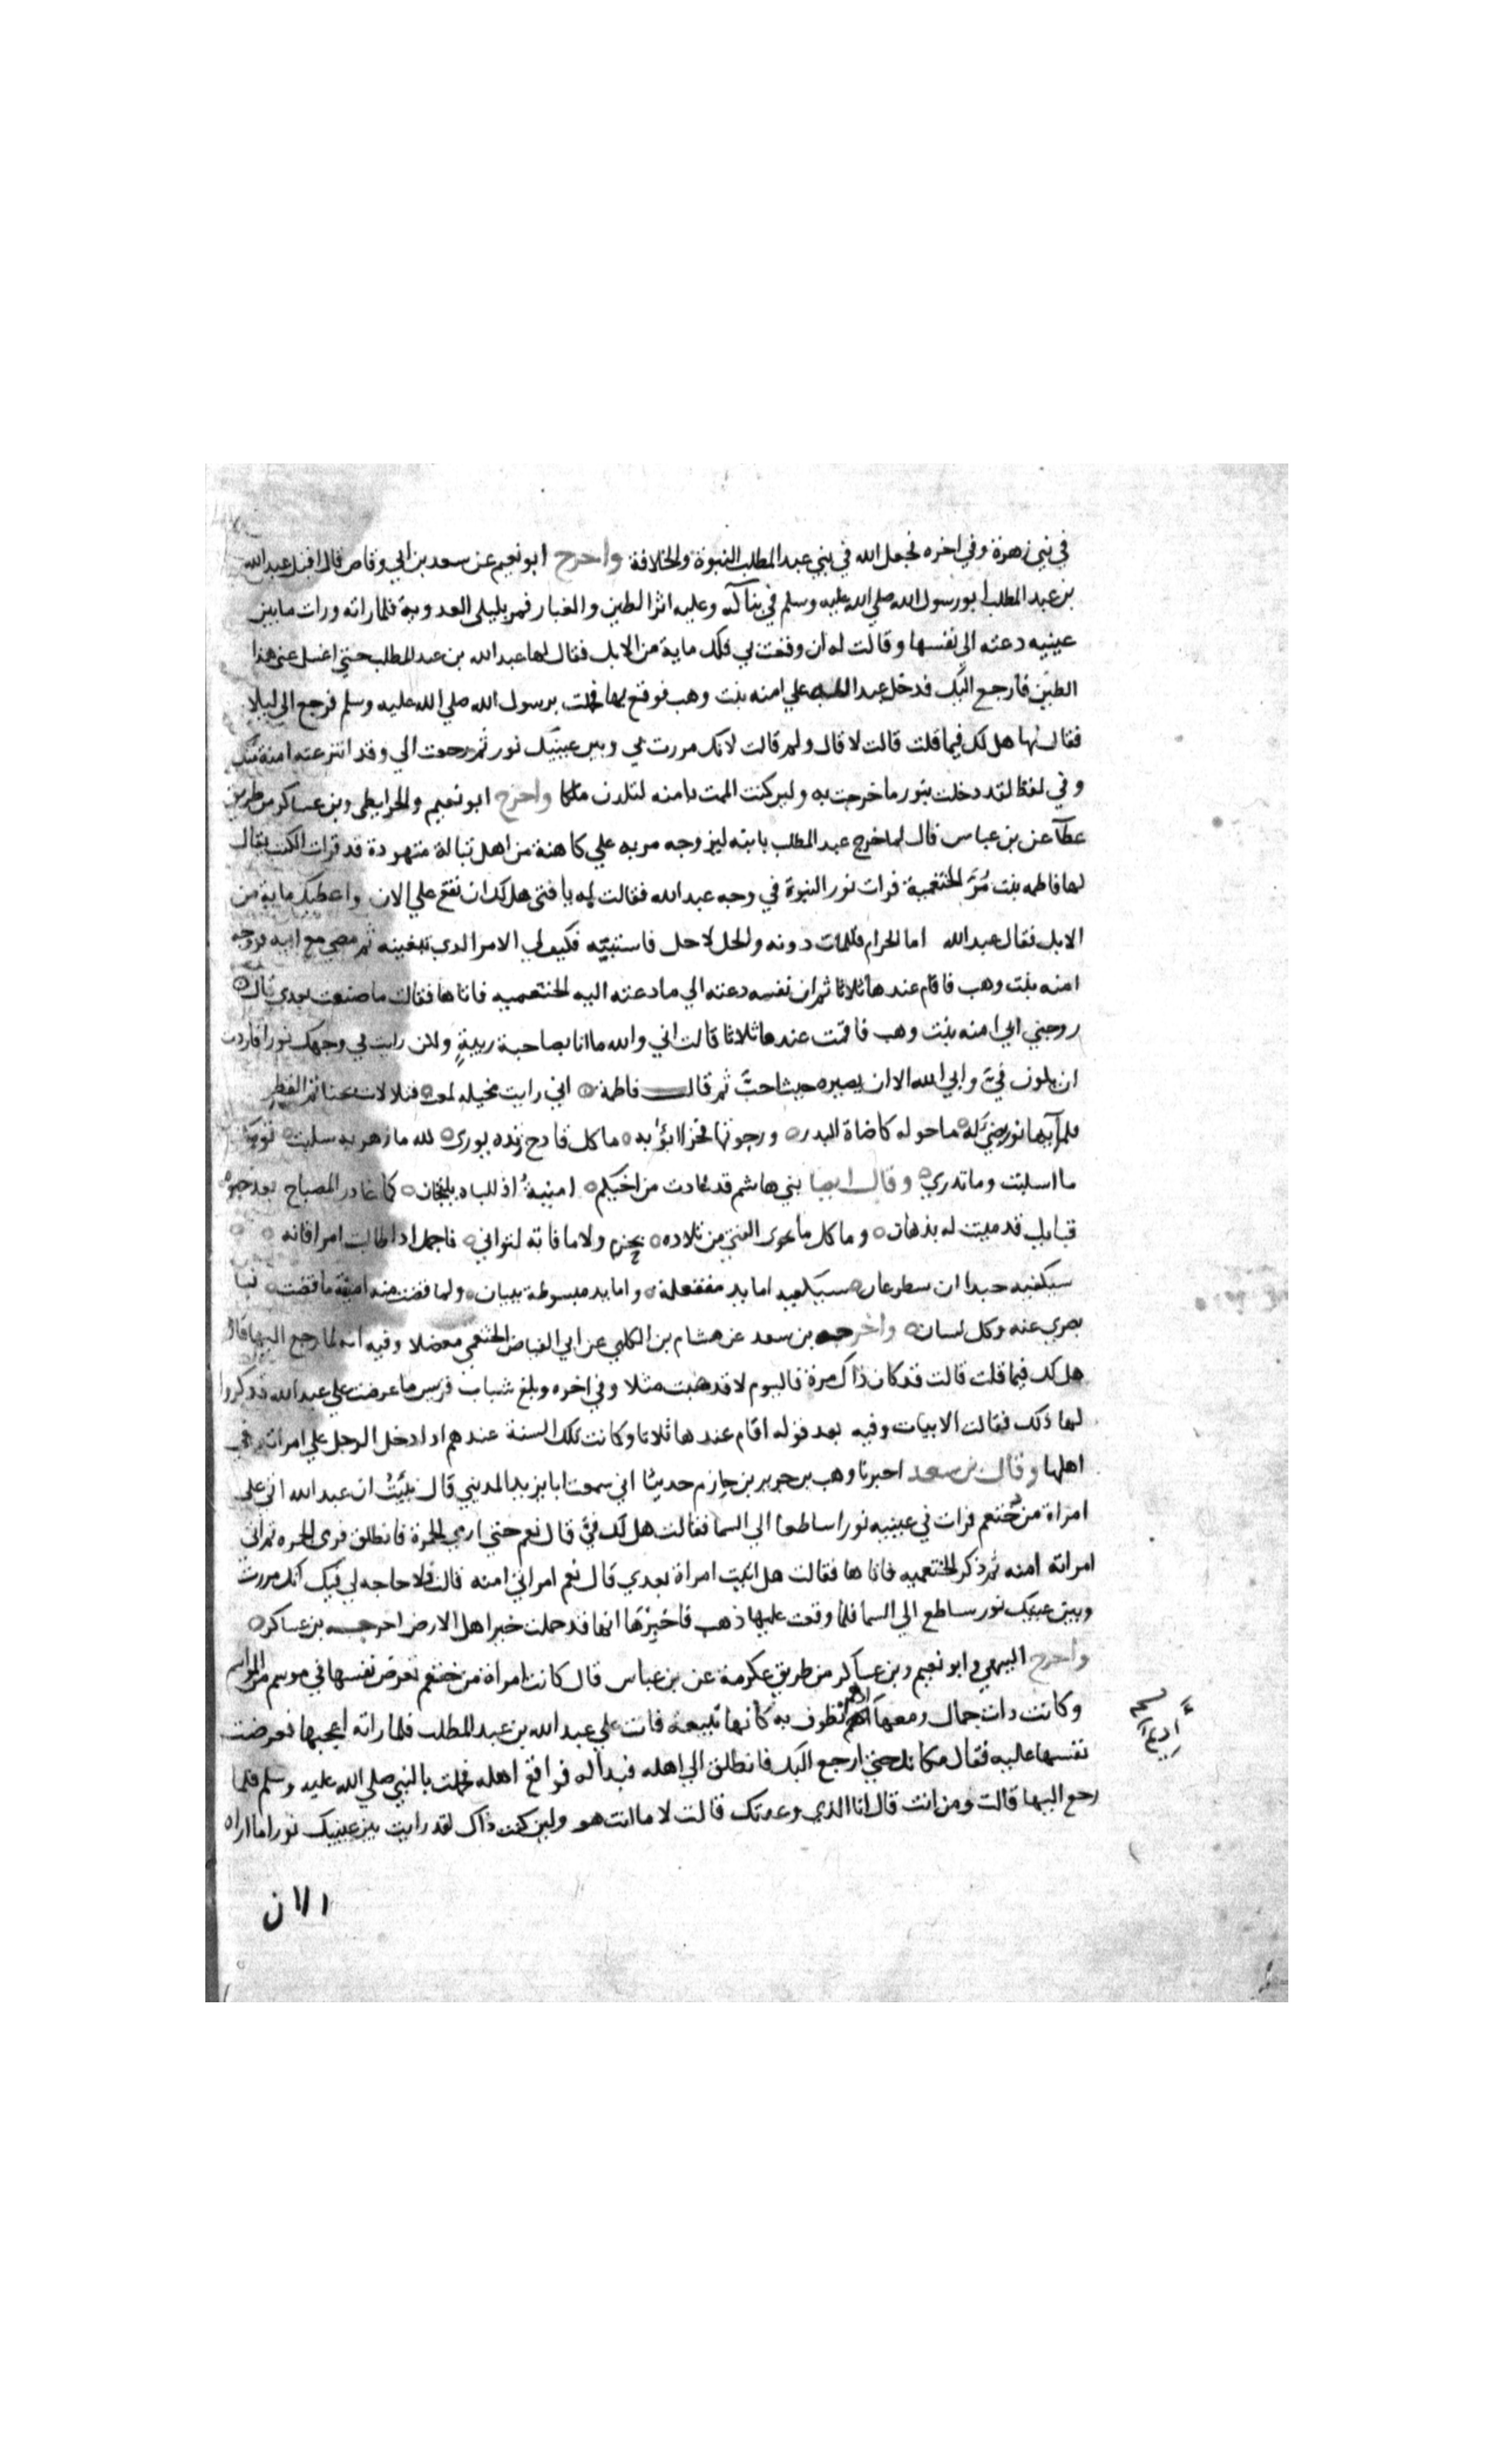 في بني زهرة وفي اخره فجعل الله في بني عبد المطلب النبوة والخلافة واخرج ابو نعيم عن سعد بن ابي وقاص قال اقبل عبد الله
بن عبد المطلب ابو رسول الله صلي الله عليه وسلم في بنآ له وعليه اثر الطين والغبار فمر بليلي العدوية فلما راته ورات ما بين
عينيه دعته الي نفسها وقالت له ان وقعت بي فلك ماية من الابل فقال لها عبد الله بن عبد المطلب حتي اغسل عني هذا
الطين فارجع اليك فدخل عبد الله علي امنه بنت وهب فوقع بها فحملت برسول الله صلي الله عليه وسلم فرجع الي ليلا
فقال لها هل لك فيما قلت قالت لا قال ولم قالت لانك مررت بي وبين عينيك نور ثم رجعت الي وقد انتزعته امنة منك
وفي لفظ لقد دخلت بنور ما خرجت به ولين كنت الممت بامنه لتلدن ملكا واخرج ابو نعيم والخرايطي وبن عساكر من طريق
عطآ عن بن عباس قال لما خرج عبد المطلب بابنه ليزوجه مر به علي كاهنة من اهل تبالة متهودة قد قرات الكتب يقال
لها فاطمه بنت مُرَّ الخثعمية فرات نور النبوة في وجه عبد الله فقالت له يا فتي هل لك ان تقع علي الان واعطيك ماية من
الابل فقال عبد الله اما الحرام فالممات دونه والحل لا حل فاستبينه فكيف لي الامر الذي تبغينه ثم مضي مع ابيه فزوجه
امنه بنت وهب فاقام عندها ثلاثا ثم ان نفسه دعته الي ما دعته اليه الخثعميه فاتاها فقالت ما صنعت بعدي قال
زوجني ابي امنه بنت وهب فاقمت عندها ثلاثا قالت اني والله ما انا بصاحبة ريبةٍ ولكن رايت في وجهك نورا فاردت
ان يكون فيَّ وابي الله الا ان يصيره حيث احبَّ ثم قالت فاطمة اني رايت مخيله لمعت فتلالات بحناتم القطر
فلمآئها نور يضي له ما حوله كاضاة البدر ورجوتها فخرا ابؤ به ما كل قادح زنده يوري لله ما زهريه سلبت ثوبيك
ما استلبت وما تدري وقالت ايضا بني هاشم قد غادرت من اخيكم امينةُ اذ للباه يلتجان كما غادر المصباح بعد خبوه
فتايل قد ميثت له بدهان وما كل ما يحوي الفتي من تلاده بحزم ولا ما فاته لتواني فاجمل اذا طالبت امرا فانه
سيكفيه جدان سيكفيه اما يد مقفعلة واما يد مبسوطة ببنان ولما قضت منه امينة ما قضت نبا
بصري عنه وكل لسان واخرجه بن سعد عن هشام بن الكلبي عن ابي الفياض الخثعمي معضلا وفيه انه لما رجع اليها قال
هل لك فيما قلت قالت قد كان ذاك مرة فاليوم لا فدهبت مثلا وفي اخره وبلغ شباب قريش ما عرضت علي عبد الله فذكروا
لها ذلك فقالت الابيات وفيه بعد قوله اقام عندها ثلاثا وكانت تلك السنة عندهم اذا دخل الرجل علي امراته في
اهلها وقال بن سعد اخبرنا وهب بن جرير بن حازم حدثنا ابي سمعت ابا يزيد المديني قال نُبِّيتُ ان عبد الله اتي علي
امراة من خثعم فرات في عينيه نورا ساطعا الي السما فقالت هل لك فيَّ قال نعم حتي ارمي الجمرة فانطلق فرمي الجمره ثم اتي
امراته امنه ثم ذكر الخثعميه فاتاها فقالت هل اتيت امراة بعدي قال نعم امراتي امنه قالت فلا حاجه لي فيك انك مررت
وبين عينيك نور ساطع الي السما فلما وقعت عليها ذهب فاخبرها انها قد حملت خير اهل الارض اخرجه بن عساكر
واخرج البيهقي وابو نعيم وبن عساكر من طريق عكرمة عن بن عباس قال كانت امراة من خثعم تعرض نفسها في موسم من المواسم
وكانت ذات جمال ومعها ادم تطوف به كانها تبيعه فاتت علي عبد الله بن عبد المطلب فلما راته اعجبها فعرضت
نفسها عليه فقال مكانك حتي ارجع اليك فانطلق الي اهله فبدا له فواقع اهله فحملت بالنبي صلي الله عليه وسلم فلما
رجع اليها قالت ومن انت قال انا الذي وعدتك قالت لا ما انت هو ولين كنت ذاك لقد رايت بين عينيك نورا ما اراه
الان